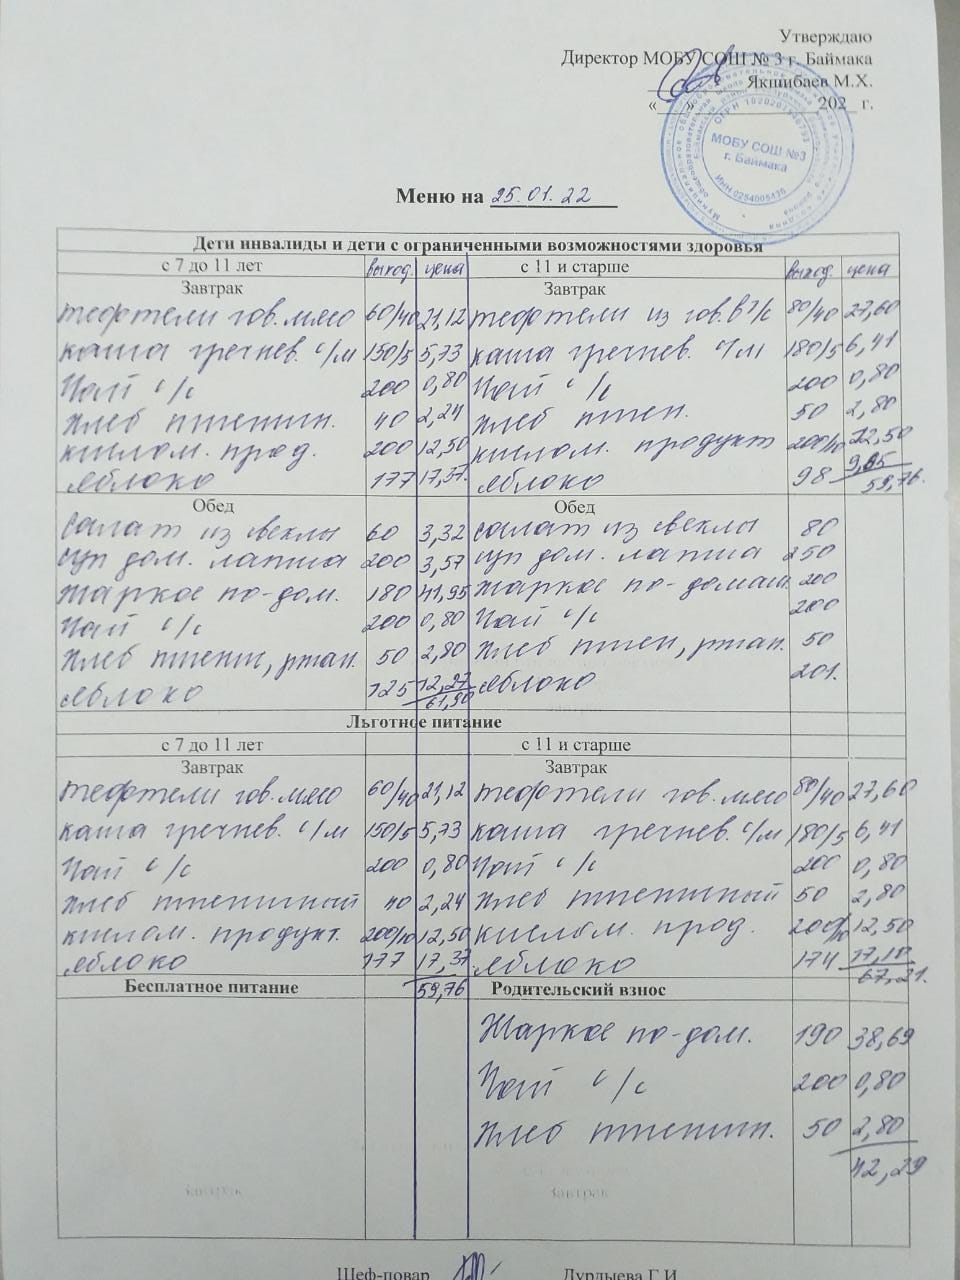 Утверждаю
Директор МОБУ СОШ № 3 г. Баймака
Якшибаев М.Х.
«    »    202  г.
МОБУ СОШ №3
г. Баймака
ИНН 0254005435
Меню на 25.01.22
Дети инвалиды и дети с ограниченными возможностями здоровья
с 7 до 11 лет выход. цена с 11 и старше выход. цена
Завтрак Завтрак
тефтели гов. мясо 60/40 21,12 тефтели из гов. в т/с 80/40 27,60
каша гречнев. с/м 150/5 5,73 каша гречнев. с/м 180/5 6,41
Чай с/с 200 0,80 Чай с/с 200 0,80
хлеб пшеничн. 40 2,24 хлеб пшен. 50 2,80
кислом. прод. 200 12,50 кислом. продукт 200/10 12,50
яблоко 177 17,37 яблоко 98 9,65
59,76.
Обед Обед
салат из свеклы 60 3,32 салат из свеклы 80
суп дом. лапша 200 3,57 суп дом. лапша 250
Жаркое по-дом. 180 41,95 Жаркое по-домаш. 200
Чай с/с 200 0,80 Чай с/с 200
хлеб пшенич, ржан. 50 2,80 хлеб пшен, ржан. 50
яблоко 125 12,27 яблоко 201.
61,90
Льготное питание
с 7 до 11 лет с 11 и старше
Завтрак Завтрак
тефтели гов. мясо 60/40 21,12 тефтели гов. мясо 80/40 27,60
каша гречнев. с/м 150/5 5,73 каша гречнев. с/м 180/5 6,41
Чай с/с 200 0,80 Чай с/с 200 0,80
хлеб пшеничный 40 2,24 хлеб пшеничный 50 2,80
кислом. продукт. 200/10 12,50 кислом. прод. 200/10 12,50
яблоко 177 17,37 яблоко 174 17,10
59,76 67,21.
Бесплатное питание Родительский взнос
Жаркое по-дом. 190 38,69
Чай с/с 200 0,80
хлеб пшеничн. 50 2,80
42,29
Завтрак Завтрак
Шеф-повар Дурдыева Г.И.